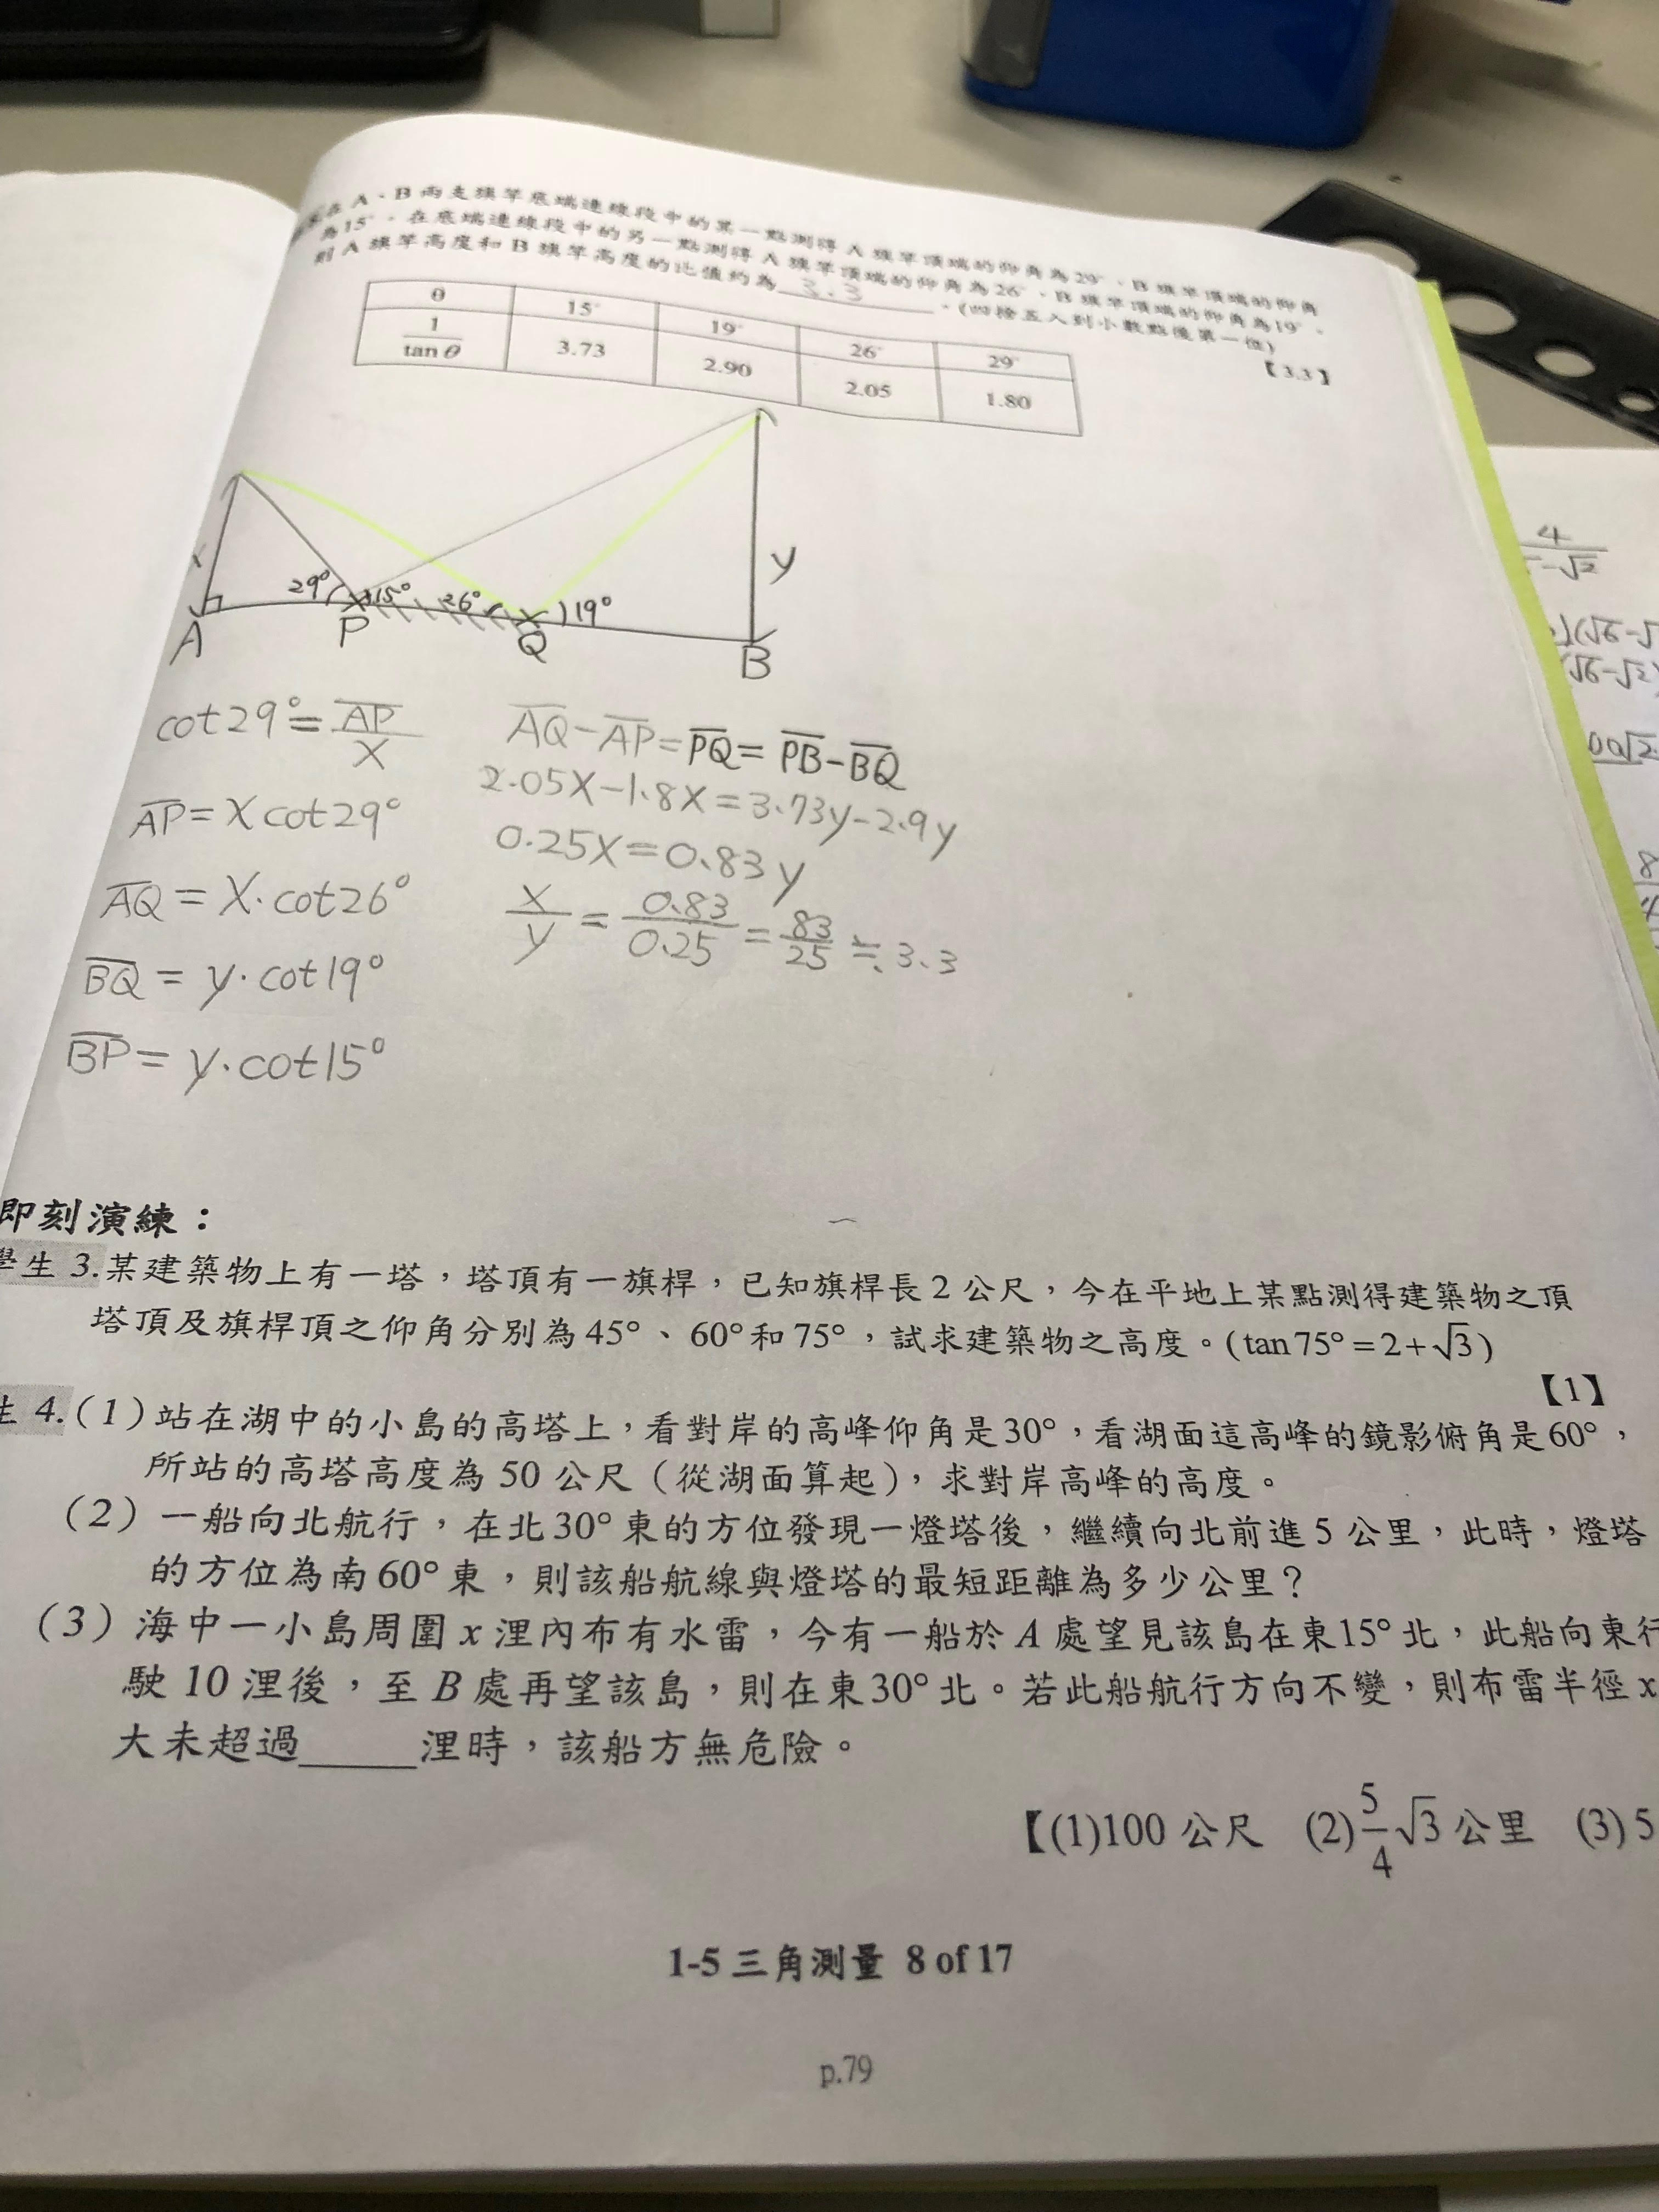 在 A、B 兩支旗竿底端連線段中的某一點測得 A 旗竿頂端的仰角為29°、B 旗竿頂端的仰角
為15°,在底端連線段中的另一點測得 A 旗竿頂端的仰角為26°、B 旗竿頂端的仰角為19°,
則 A 旗竿高度和 B 旗竿高度的比值約為 3.3 。(四捨五入到小數點後第一位)
【3.3】
θ 15° 19° 26° 29°
1/tan θ 3.73 2.90 2.05 1.80
x
y
29° 15° 26° 19°
A P Q B
cot29°=AP/x
AP=x cot29°
AQ=x·cot26°
BQ=y·cot19°
BP=y·cot15°
AQ-AP=PQ=PB-BQ
2.05x-1.8x=3.73y-2.9y
0.25x=0.83y
x/y=0.83/0.25=83/25≒3.3
即刻演練:
學生 3.某建築物上有一塔,塔頂有一旗桿,已知旗桿長 2 公尺,今在平地上某點測得建築物之頂
塔頂及旗桿頂之仰角分別為 45°、60°和 75°,試求建築物之高度。(tan 75°=2+√3)
【1】
生 4.(1)站在湖中的小島的高塔上,看對岸的高峰仰角是30°,看湖面這高峰的鏡影俯角是60°,
所站的高塔高度為 50 公尺(從湖面算起),求對岸高峰的高度。
(2)一船向北航行,在北30°東的方位發現一燈塔後,繼續向北前進 5 公里,此時,燈塔
的方位為南60°東,則該船航線與燈塔的最短距離為多少公里?
(3)海中一小島周圍 x 浬內布有水雷,今有一船於 A 處望見該島在東15°北,此船向東行
駛 10 浬後,至 B 處再望該島,則在東30°北。若此船航行方向不變,則布雷半徑 x
大未超過_____浬時,該船方無危險。
【(1)100 公尺 (2)5/4√3 公里 (3) 5
1-5 三角測量 8 of 17
p.79